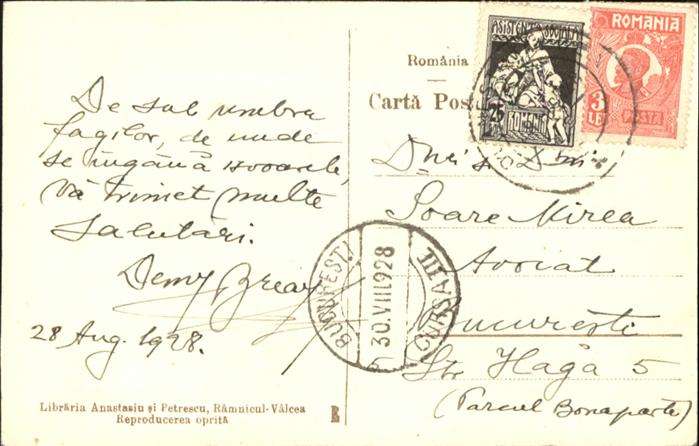 De sub umbra
fagilor, de unde
se îngână izvoarele,
vă trimet multe
salutari.
28 Aug. 1928.
Librăria Anastasiu și Petrescu, Râmnicul-Vâlcea
Reproducerea oprită
R
ASISTENȚA SOCIALA
ROMANIA
ROMANIA
3
LEI
POSTA
România
Cartă Poștală
Dnei și Dlui
Soare Mirea
Avocat
București
Str Haga 5
(Parcul Bonaparte)
BUCUREȘTI
30.VIII.928
CURSA III